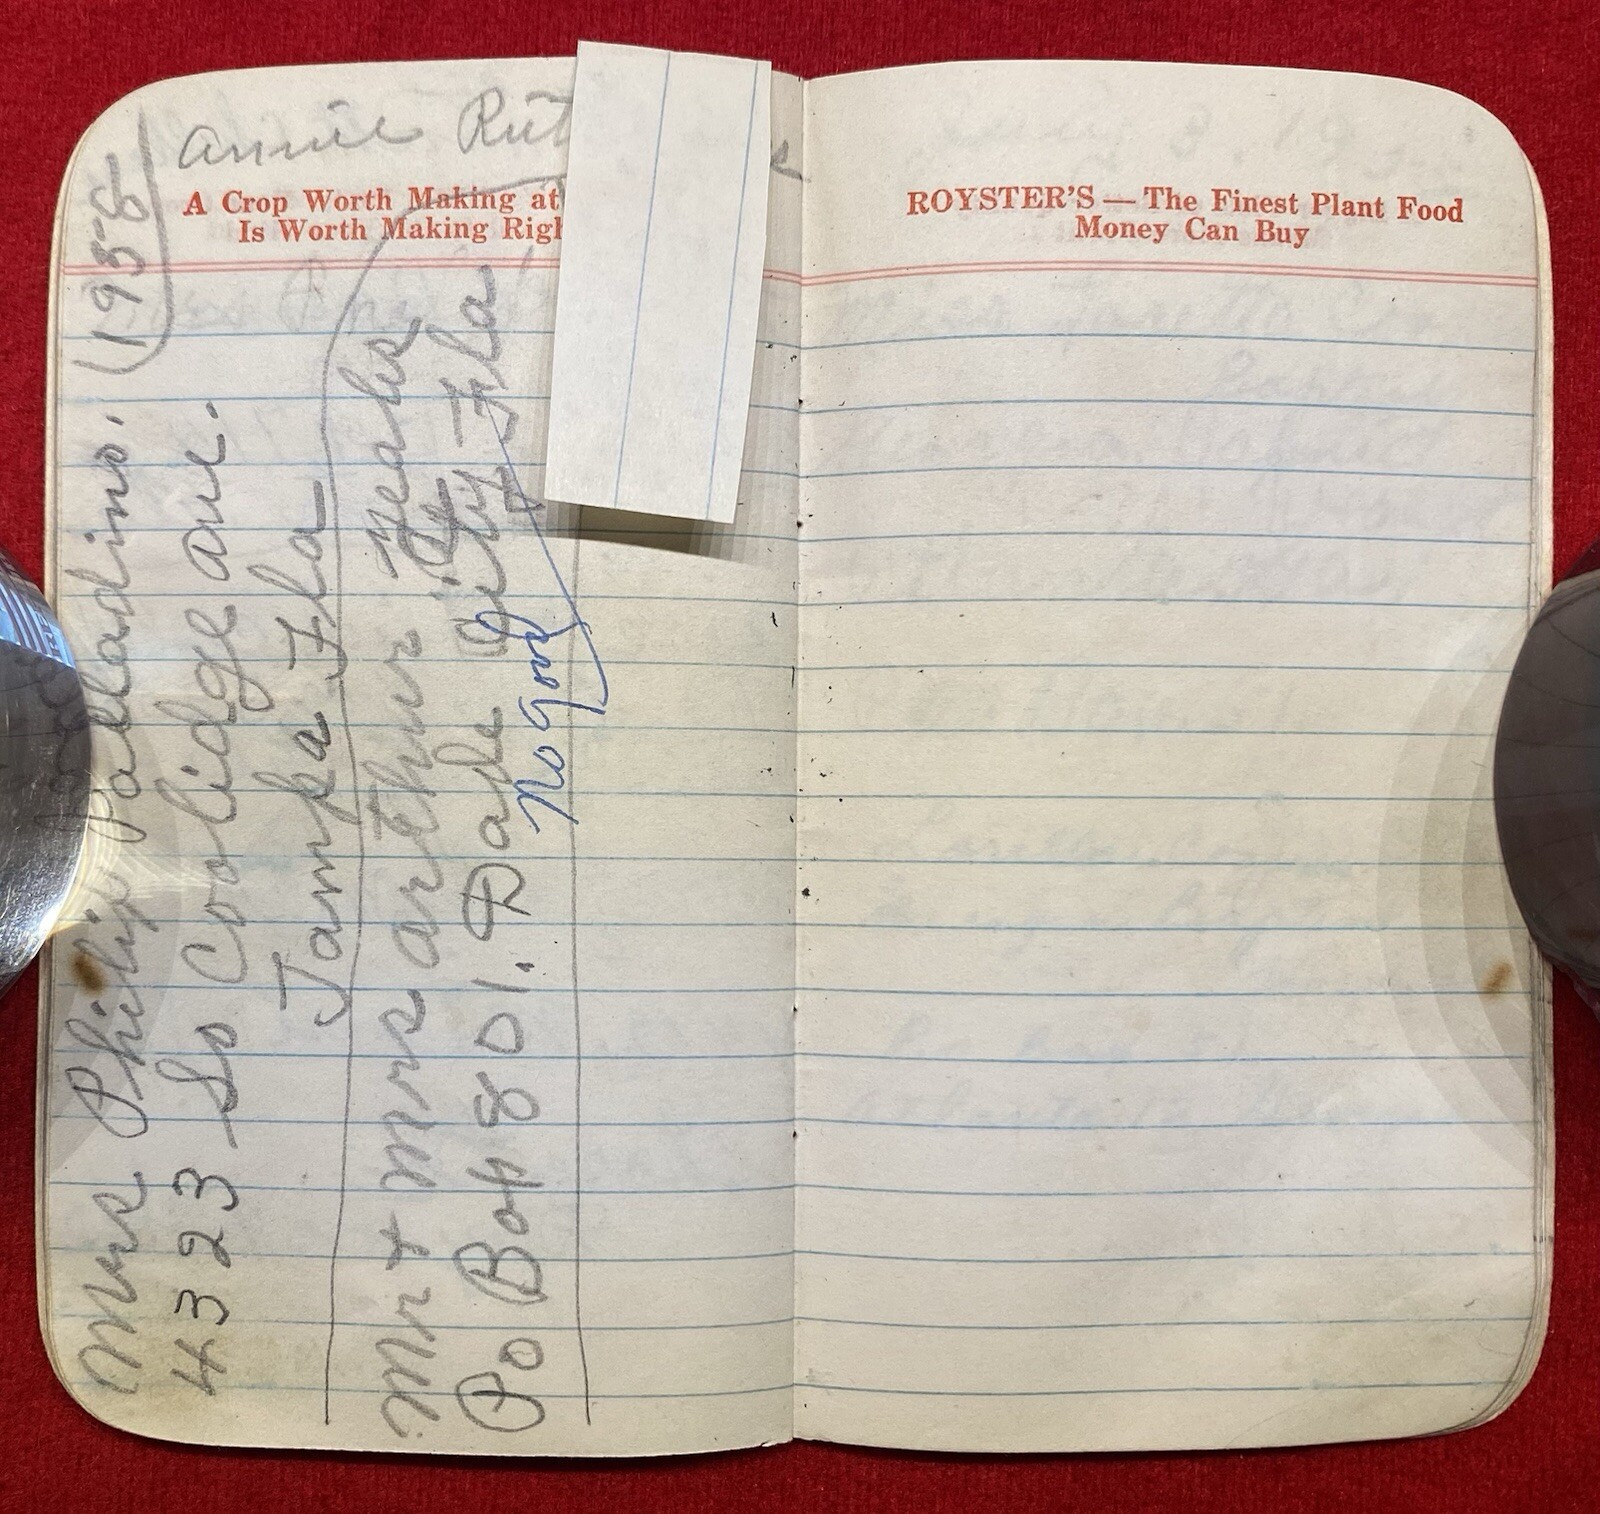 Annie Rut
A Crop Worth Making at
Is Worth Making Righ
Mrs Philip Palladino. (1958)
4323 So Coolidge ave.
Tampa Fla
Mr + Mrs arthur
Po Box 801. Dade City Fla
No good
ROYSTER'S — The Finest Plant Food
Money Can Buy